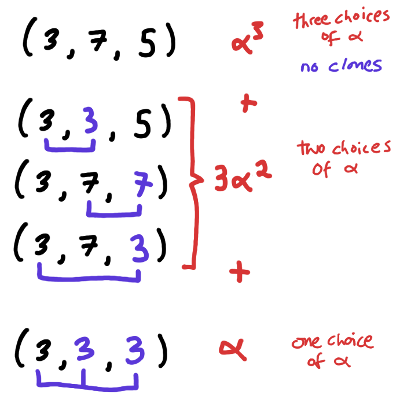 (3, 7, 5) α³ three choices of α
no clones
+
(3, 3, 5)
(3, 7, 7) 3α² two choices of α
(3, 7, 3)
+
(3, 3, 3) α one choice of α